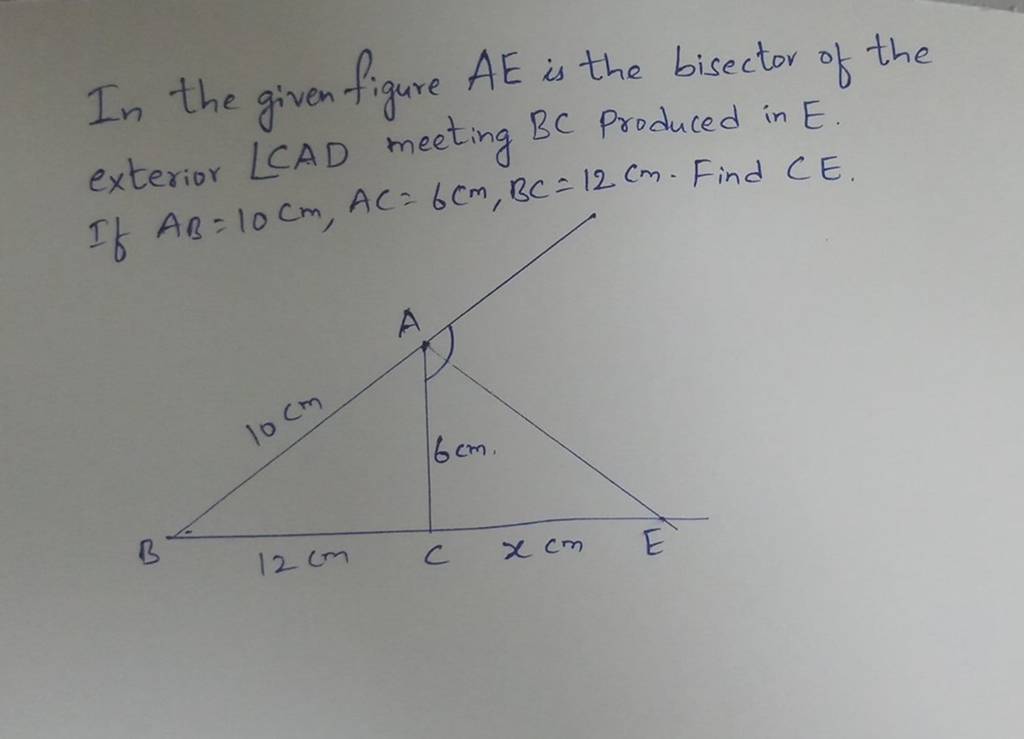 In the given figure AE is the bisector of the
exterior ∠CAD meeting BC Produced in E.
If AB = 10 Cm, AC = 6 Cm, BC = 12 Cm. Find CE.
A
10 cm
6 cm.
B
12 cm
C
x cm
E